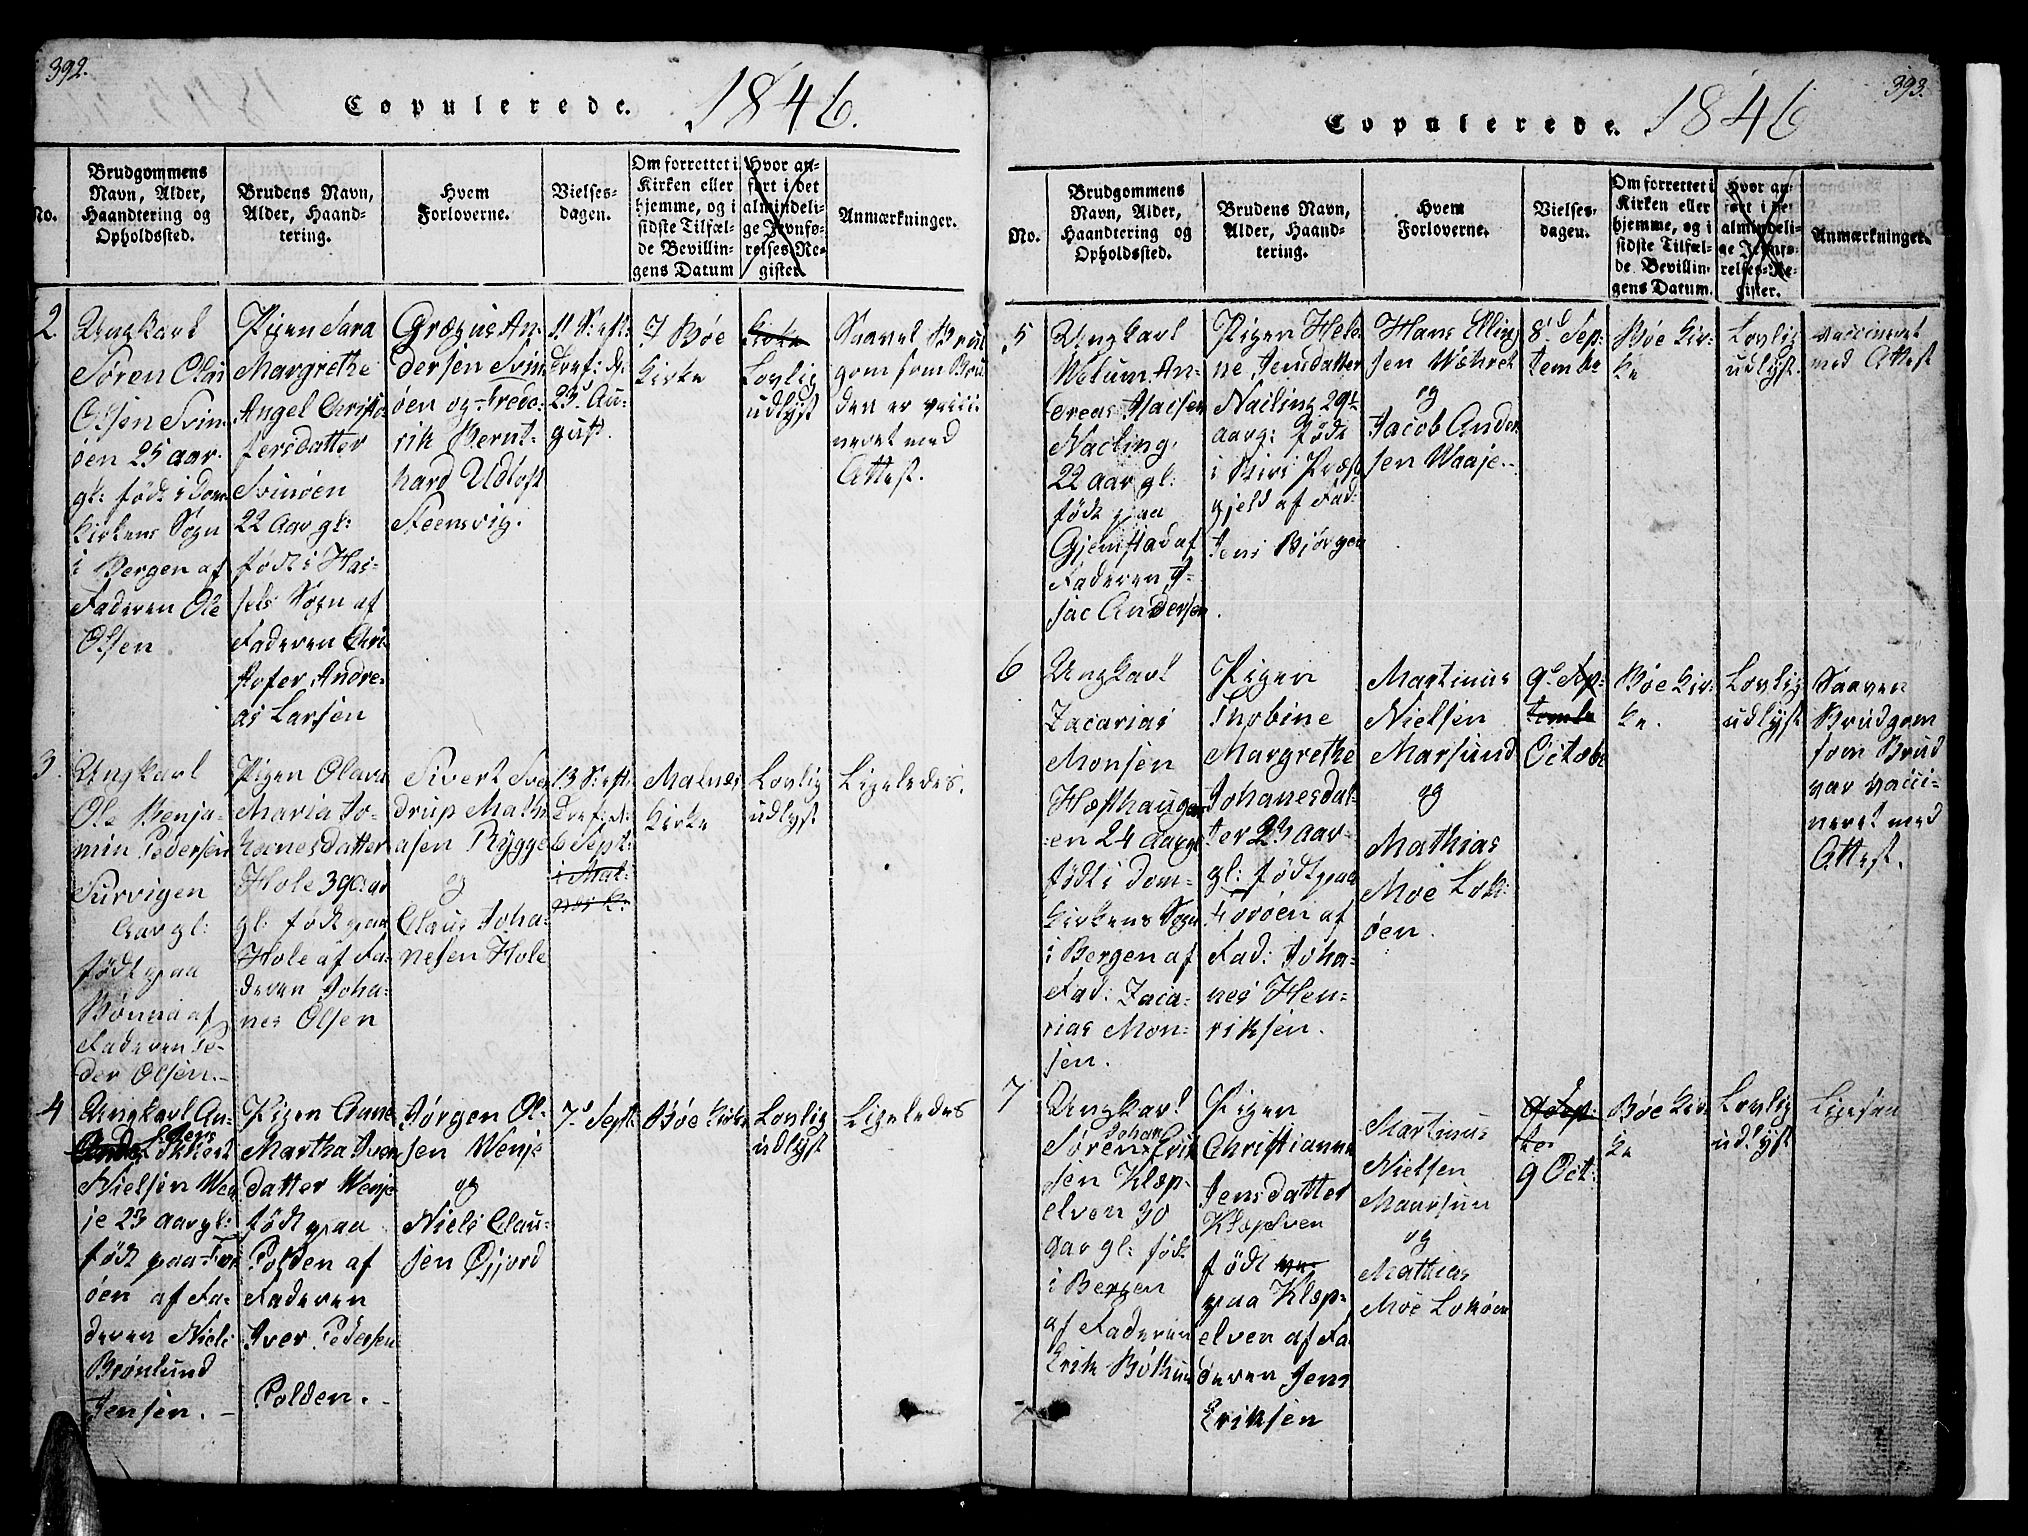 392.
Copulerede. 1846.
No.
Brudgommens
Navn, Alder,
Haandtering og
Opholdssted.
Brudens Navn,
Alder, Haand-
tering.
Hvem
Forloverne.
Vielses-
dagen.
Om forrettet i
Kirken eller
hjemme, og i
sidste Tilfæl-
de Bevillin-
gens Datum
Hvor an-
ført i det
almindeli-
ge Jevnfø-
relses-Re-
gister.
Anmærkninger.
2.
Ungkarl
Søren Olai
Olsen Svin-
øen 25 aar
gl: født i Dom
Kirkens Sogn
i Bergen af
Faderen Ole
Olsen.
Pigen Sara
Margrethe
Angel Christo
fersdatter
Svinøen
22 Aar gl:
født i Has-
sels Sogn af
Faderen Chri-
stofer Andre-
as Larsen
Græqus An-
dersen Svin
øen og Frede-
rik Bernt-
hard Udtoft
Steensvig.
11 S: eft.
Tref: d:
23d Au-
gust.
I Bøe
Kirke
Kirke
Lovlig
udlyst
Saavel Brud
gom som Bru
den er vacci
neret med
Attest.
3.
Ungkarl
Ole Benja-
min Pedersen
Survigen
Aar gl:
født paa
Bønna af
Faderen Pe-
der Olsen.-
Pigen Olava
Maria Jo-
hannesdatter
Hole 39 aar
gl: født paa
Hole af Fa-
deren Joha-
nes Olsen
Sivert Sver
drup Math
asen Rygge
og
Claus Joha-
nesen Hole
13 S: eft
Tref: d:
6 Sept:
i Mal-
nes K:
Malnes
Kirke
Lovlig
udlyst
Ligeledes.
4
Ungkarl An-
ders Lokkert
Nielsen Wen
je 23 aar gl:
født paa For
øen af Fa-
deren Niels
Brønlund
Jensen.
Pigen Anne
Martha Iver
datter Wenje
født paa
Polden af
Faderen
Iver Pedersen
Polden.
Jørgen Ol-
sen Wenje
og
Niels Clau-
sen Øfjord
7d Sept:
Bøe Kirke
Lovlig
udlyst
Ligeledes
393.
Copulerede. 1846
No.
Brudgommens
Navn, Alder,
Haandtering og
Opholdssted.
Brudens Navn,
Alder, Haand-
tering.
Hvem
Forloverne.
Vielses-
dagen.
Om forrettet i
Kirken eller
hjemme, og i
sidste Tilfæl-
de Bevillin-
gens Datum.
Hvor an-
ført i det
almindeli-
ge Jevnfø-
relses-Re-
gister.
Anmærkninger.
5
Ungkarl
Welum An-
dreas Isacsen
Nacling
22 Aar gl:
født paa
Gjemstad af
Faderen I-
sac Andersen
Pigen Hele
ne Jensdatter
Nacling 29
aar g: født
i Biri Præst
gjeld af Fad:
Jens Bjørgen
Hans Elling
sen Wøhret
og
Jacob Ander
sen Waaje.-
8d Sep-
tembr
Bøe Kir-
ke
Lovlig
udlyst.
vaccineret
med Attest
6
Ungkarl
Zacarias
Monsen
Hæfthaugen
-en 24 aar gl
født i Dom-
Kirkens Sogn
i Bergen af
Fad: Zaca-
rias Mon-
sen.
Pigen
Thobine
Margrethe
Johanesdat-
ter 23 aar
gl: født paa
Forøen af
Fad: Joha-
nes Hen-
riksen.
Martinus
Nielsen
Marsund
og
Mathias
Moe Lok-
øen.
9d Sep-
tembr
Octobr
Bøe Kir-
ke.
Lovlig
udlyst
Saaven
Brudgom
som Brud
var vacci-
neret med
Attest.
7
Ungkarl
Søren Johan Erik
sen Klæp-
elven 30
aar gl: født
i Bergen
af Faderen
Erik
Pigen
Christianne
Jensdatter
Klæpelven
født paa
paa Klæp-
elven af Fa
deren Jens
Eriksen
Martinus
Nielsen
Maarsun
og
Mathias
Moe Lokøen
9 Sep-
te
9 Oct:
Bøe Kir
ke
Lovlig
udlyst
Ligesaa